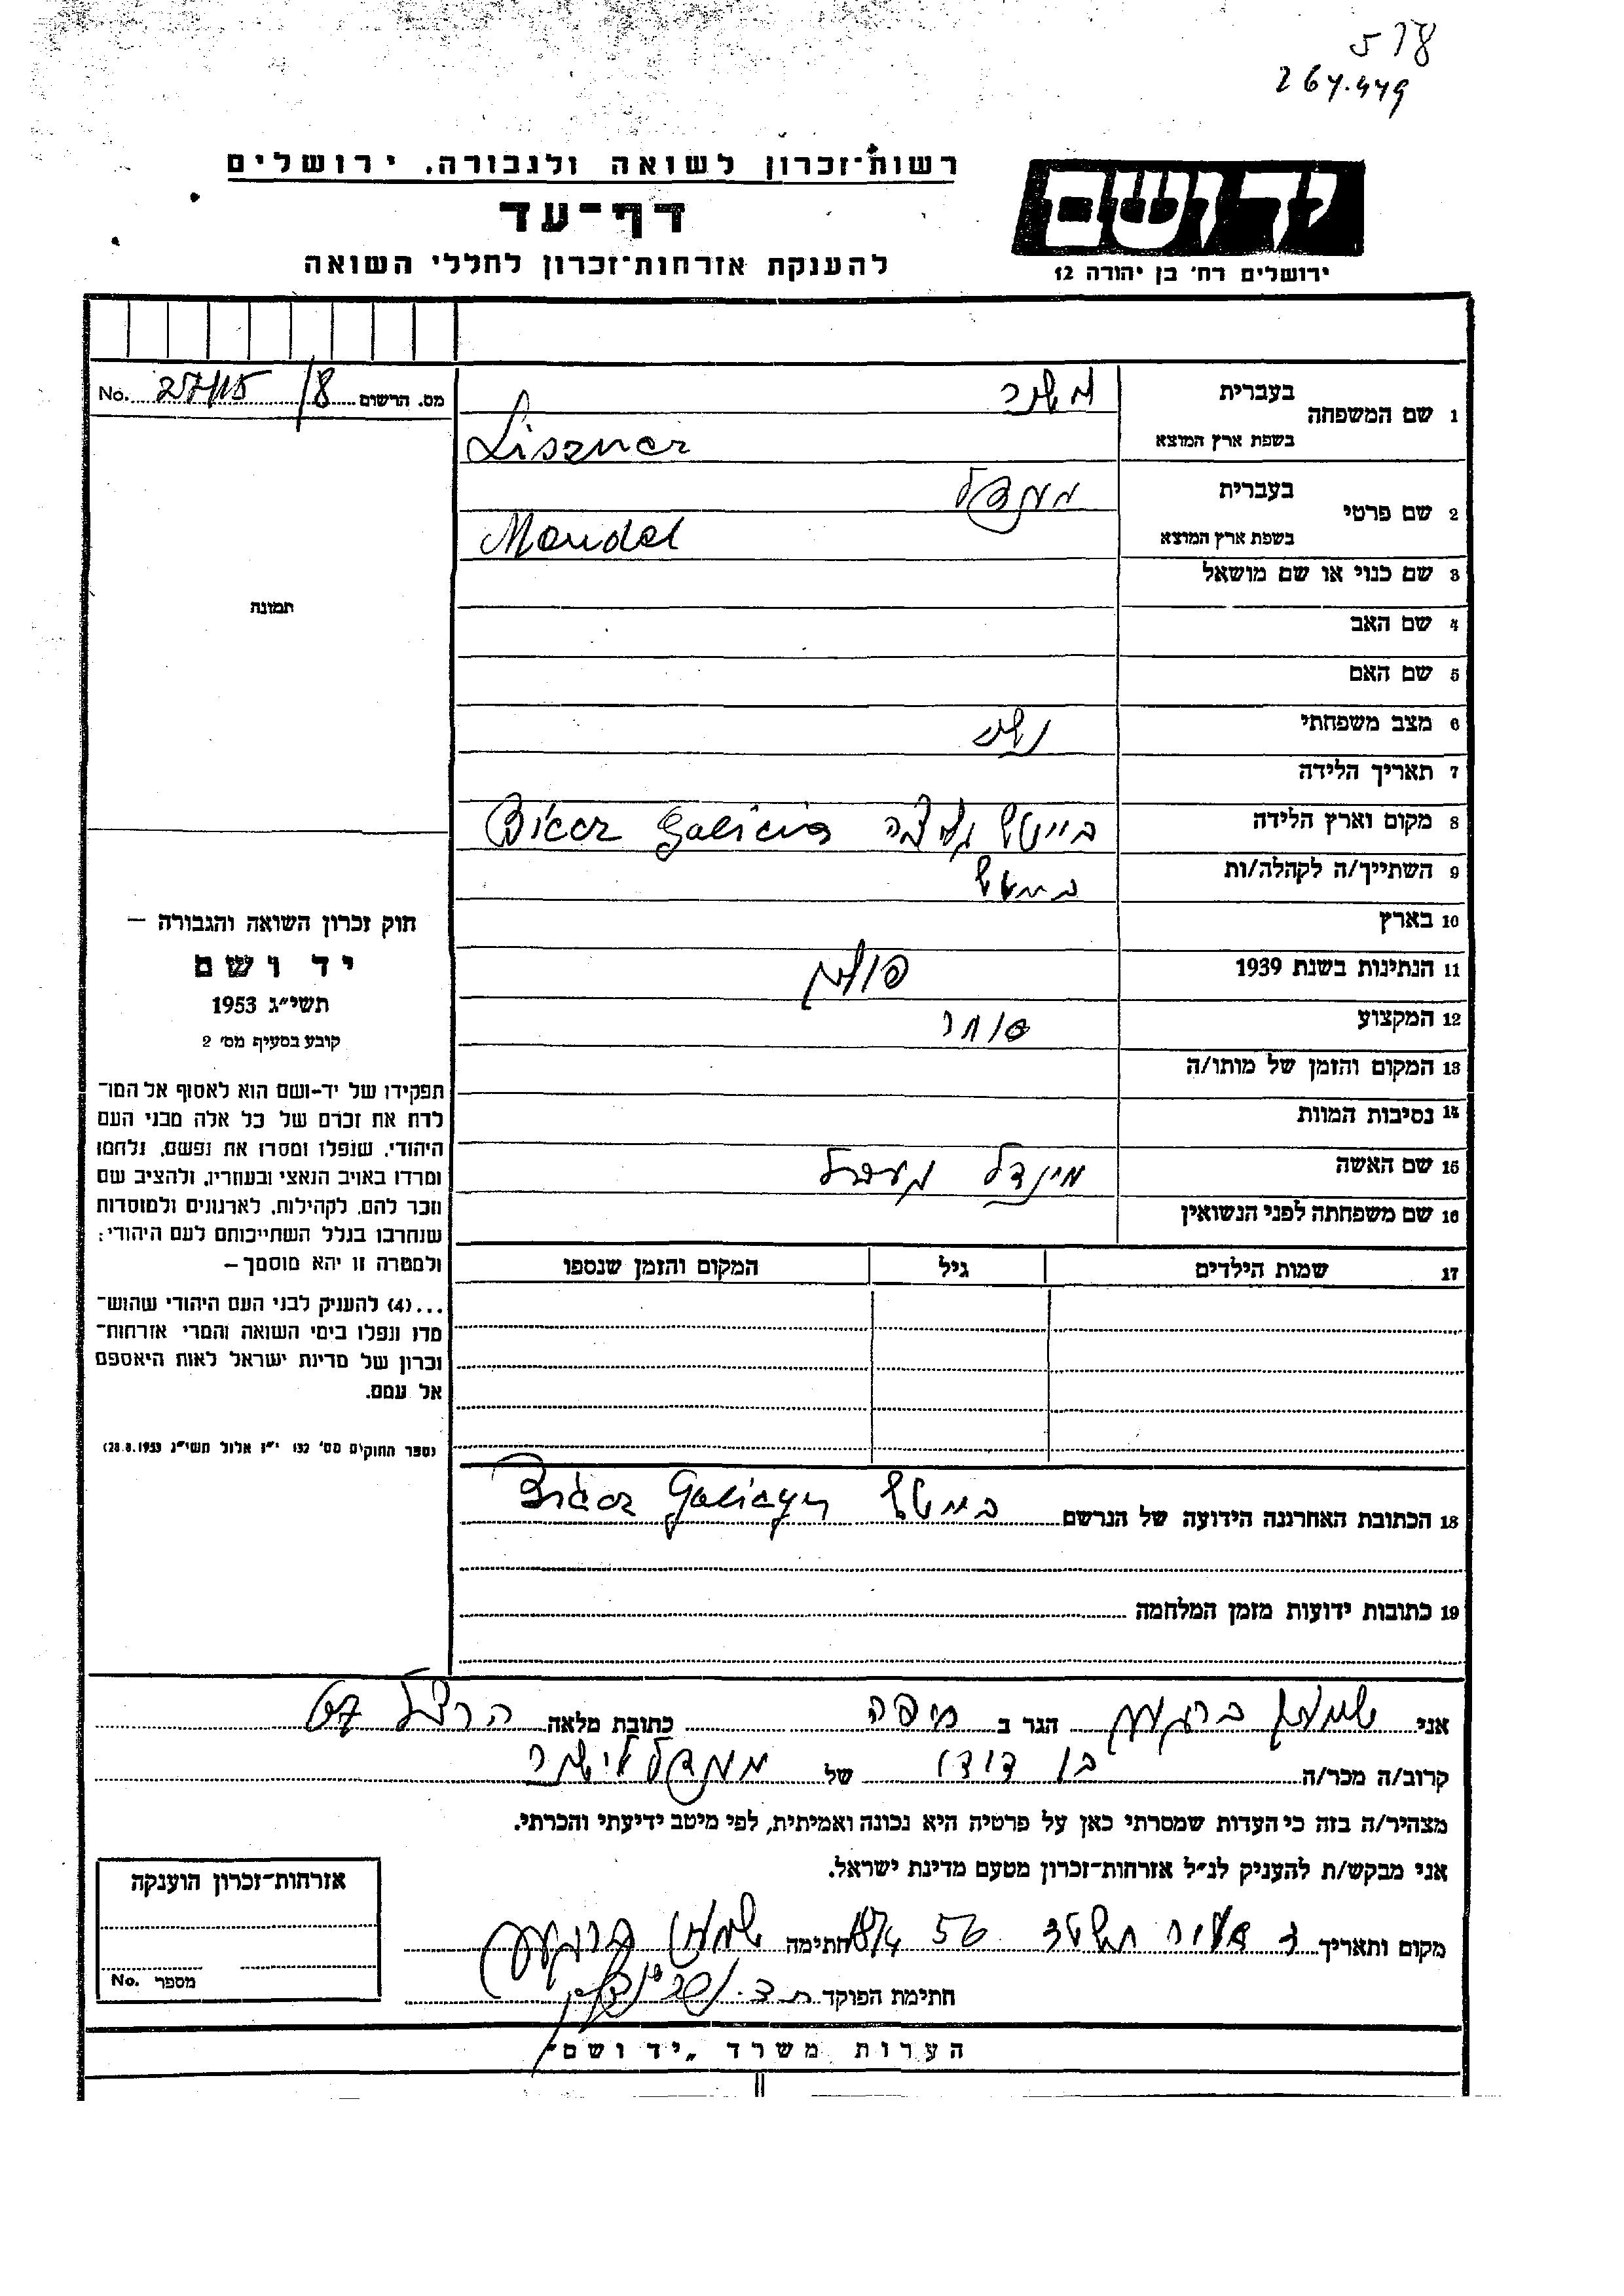 578
267.449
יד ושם
ירושלים רח' בן יהודה 12
רשות־זכרון לשואה ולגבורה, ירושלים
דף־עד
להענקת אזרחות־זכרון לחללי השואה
מס. הרשום 27415/8 No.
תמונה
1 שם המשפחה בעברית לישנר
בשפת ארץ המוצא Liszner
2 שם פרטי בעברית מנדל
בשפת ארץ המוצא Mendel
3 שם כנוי או שם מושאל
4 שם האב
5 שם האם
6 מצב משפחתי נשוי
7 תאריך הלידה
8 מקום וארץ הלידה בייטש גליציה Biecz Galicia
9 השתייך/ה לקהלה/ות בייטש
10 בארץ
11 הנתינות בשנת 1939 פולין
12 המקצוע סוחר
13 המקום והזמן של מותו/ה
14 נסיבות המוות
15 שם האשה מינדל
16 שם משפחתה לפני הנשואין
17 שמות הילדים גיל המקום והזמן שנספו
חוק זכרון השואה והגבורה –
יד ושם
תשי״ג 1953
קובע בסעיף מס' 2
תפקידו של יד-ושם הוא לאסוף אל המו־
לדת את זכרם של כל אלה מבני העם
היהודי, שנפלו ומסרו את נפשם, נלחמו
ומרדו באויב הנאצי ובעוזריו, ולהציב שם
וזכר להם, לקהילות, לארגונים ולמוסדות
שנחרבו בגלל השתייכותם לעם היהודי:
ולמטרה זו יהא מוסמך –
...(4) להעניק לבני העם היהודי שהוש־
מדו ונפלו בימי השואה והמרי אזרחות־
זכרון של מדינת ישראל לאות היאספם
אל עמם.
(ספר החוקים מס' 132 י״ז אלול תשי״ג 28.8.1953)
18 הכתובת האחרונה הידועה של הנרשם בייטש Biecz
19 כתובות ידועות מזמן המלחמה
אני שמעון ברגמן הגר ב חיפה כתובת מלאה הרצל 67
קרוב/ה מכר/ה בן דודו של מנדל לישנר
מצהיר/ה בזה כי העדות שמסרתי כאן על פרטיה היא נכונה ואמיתית, לפי מיטב ידיעתי והכרתי.
אני מבקש/ת להעניק לנ״ל אזרחות־זכרון מטעם מדינת ישראל.
מקום ותאריך 56 18/4 חתימה שמעון ברגמן
חתימת הפוקד
אזרחות־זכרון הוענקה
מספר No.
הערות משרד „יד ושם״